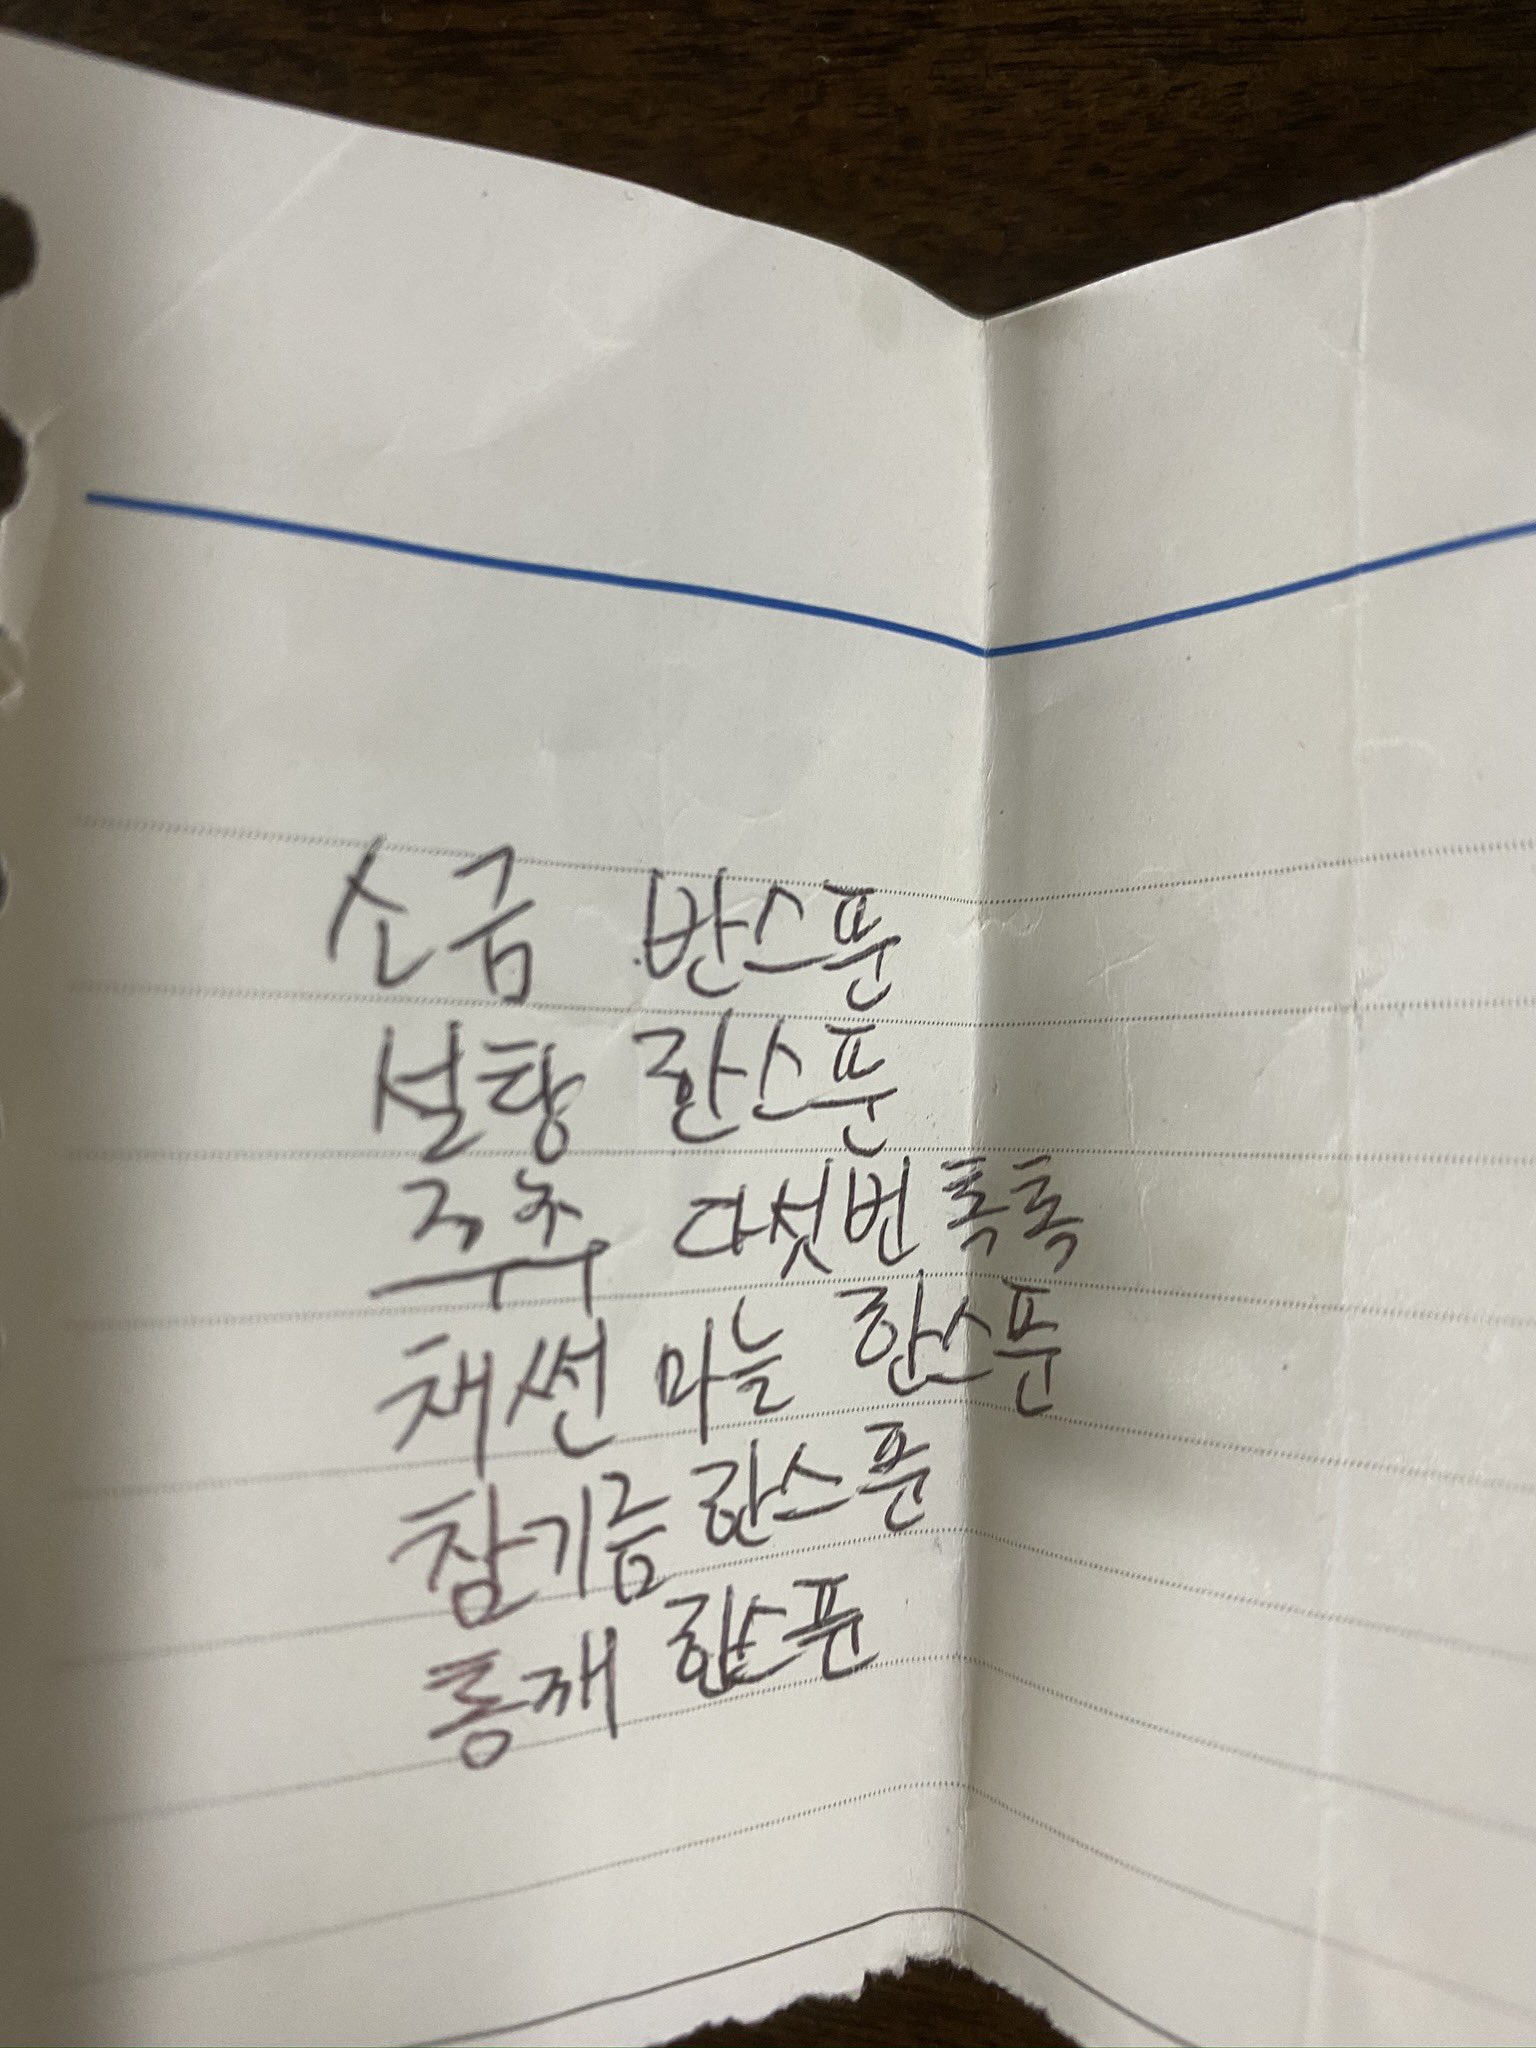 소금 반스푼
설탕 한스푼
후추 다섯번 톡톡
채썬 마늘 한스푼
참기름 한스푼
통깨 한스푼